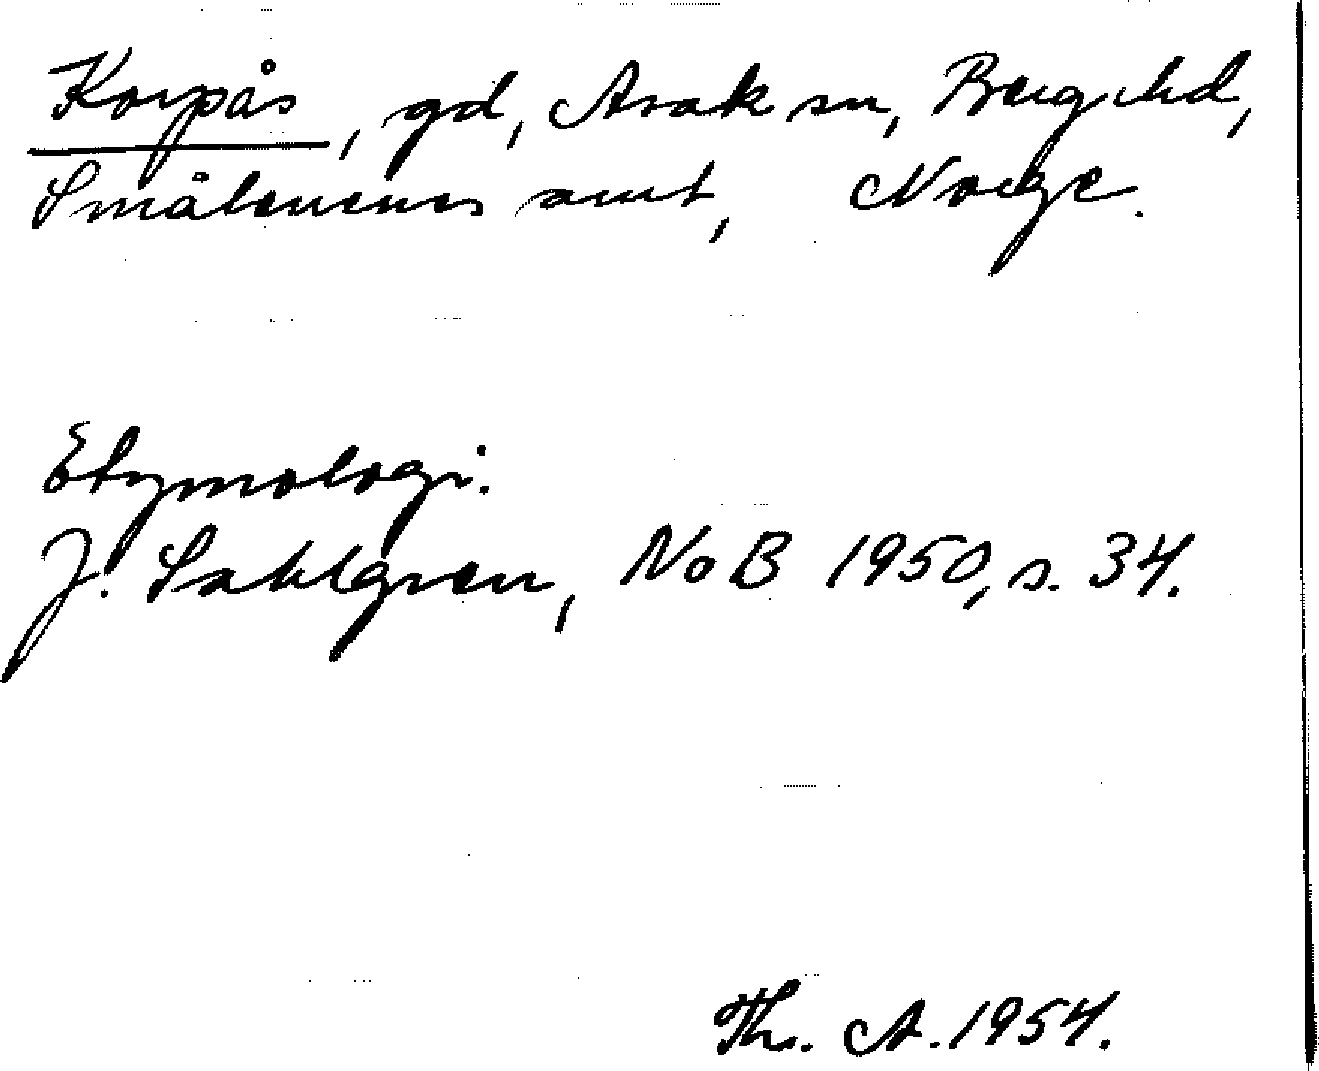 Korpås, gd, Asak sn, Berg hd,
Smålenenes amt, Norge.
Etymologi.
J. Sahlgren, NoB 1950, s. 34.
Th. A. 1954.